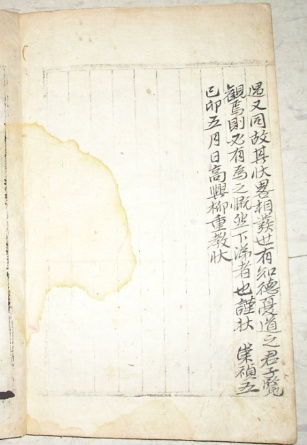 遇又同故其狀畧相發世有知德憂道之君子覽
觀焉則必有爲之慨然下涕者也謹狀 崇禎五
己卯五月日高興柳重教狀